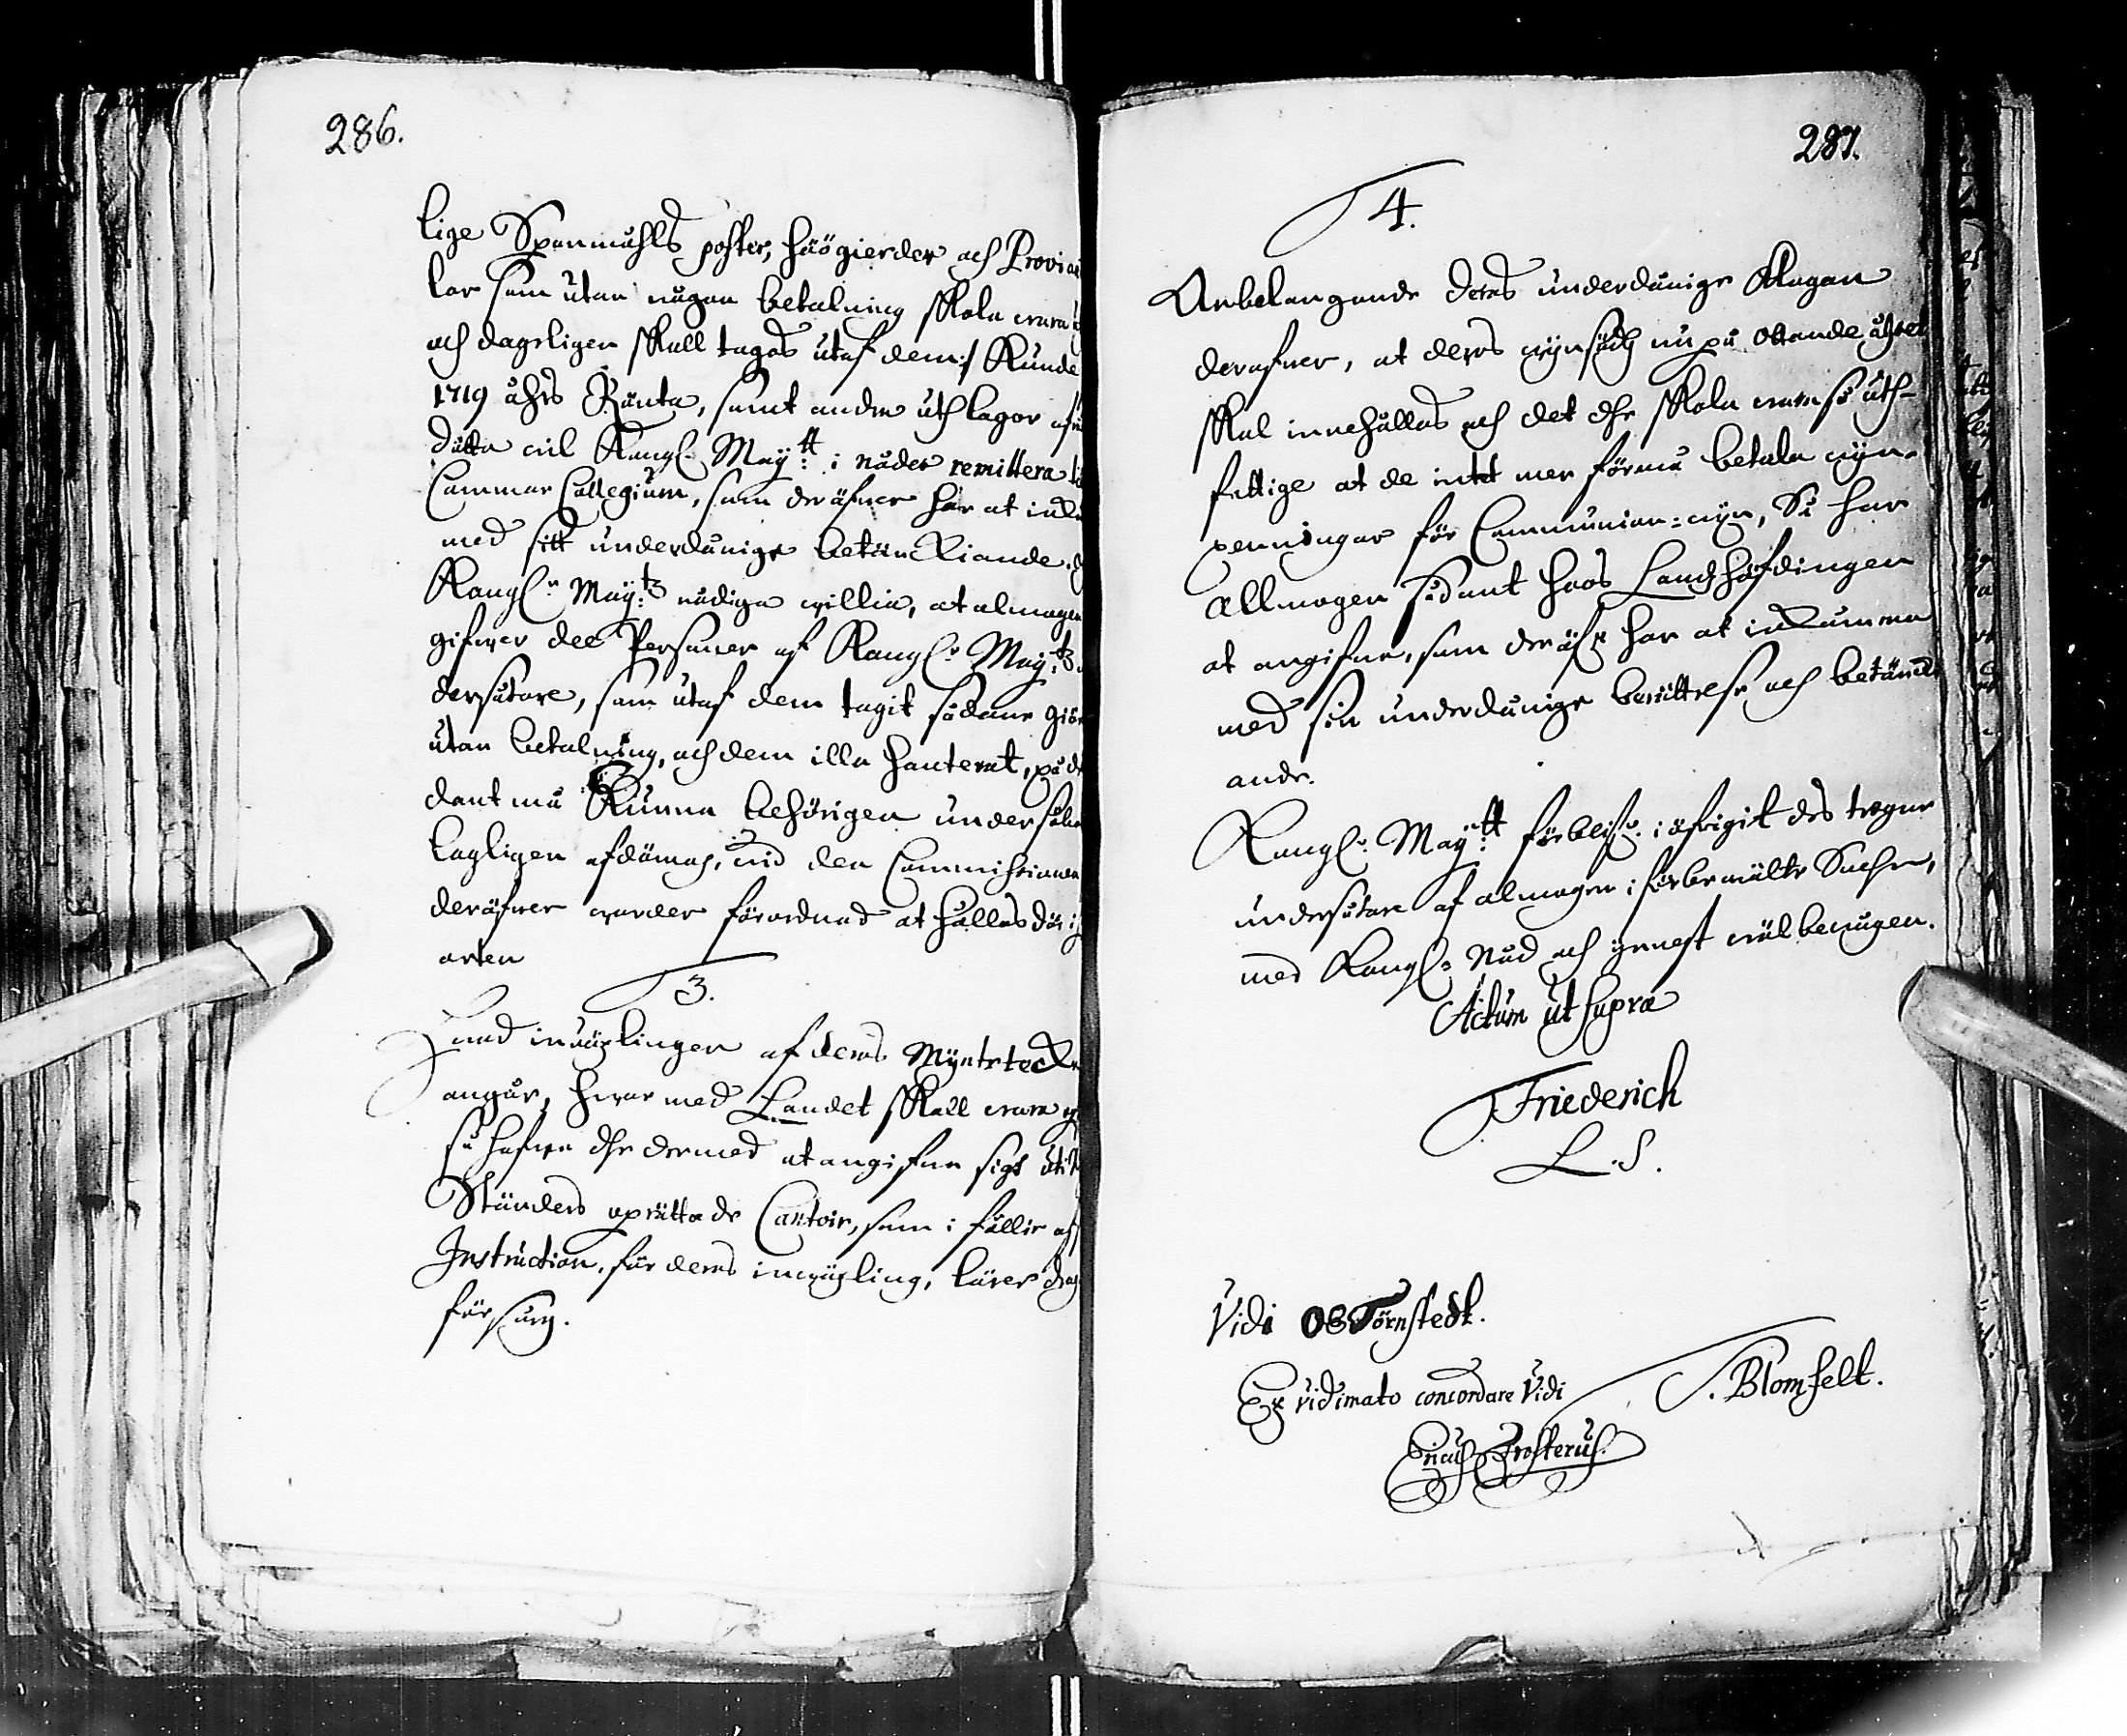 286.
lige Spanmåhls poster, häögierder och Provia
lar som utan någon betalning skola wara
och dageligen skall tagas utaf dem, Kunde
1719 åhrs Ränta, samt andra uthlagor
Detta wil Kongl. Maÿ:tt i nåder remittera
Cammar Collegium, som deröfwer har at
med sitt underdånige betänckiande.
Kongl:e Maÿ:tz nådiga willia, at almogen
gifwer dee Persouer af Kongl:e Maÿ:tz
dersåtare, som utaf dem tagit sådane
utan betalning, och dem illa hanterat, på
dant må Kunna behörigen
Lagligen afdömas, wid den Commissionen
deröfwer warder förordnad at hållas där i
orten
3.
Hwad inwäxlingen af deras Myntetecke
angår, hwar med Landet skall wara
så hafwa dhe dermed at angifwa sigh uti
Ständers uprättade Contoir, som i
Instruction, för deras inwäxling, lärer
försorg.
287.
4.
Anbelangande deras underdånige Klagan
deröfwer, at deras wijnsädh nu på ottande åhret
skal innehållas och det dhe skola wara så uth-
fattige at de intet mer förmå betala wijn-
penningar för Communion-wijn, Så har
Allmogen sådant hoos Landshöfdingen
at angifwa, som deröfwer har at inkomma
med sin underdånige berättelse och betänck-
ande.
Kongl: Maÿ:tt förblifwer i öfrigit des trogne
undersåtare af almogen i förbemälte Sochn,
med Kongl: Nåd och ynnest wälbewågen.
Actum ut supra
Friederich
L.S.
Vidi OB Törnstedt.
Ex vidimato concordare Vidi
J. Blomfelt.
Ericus